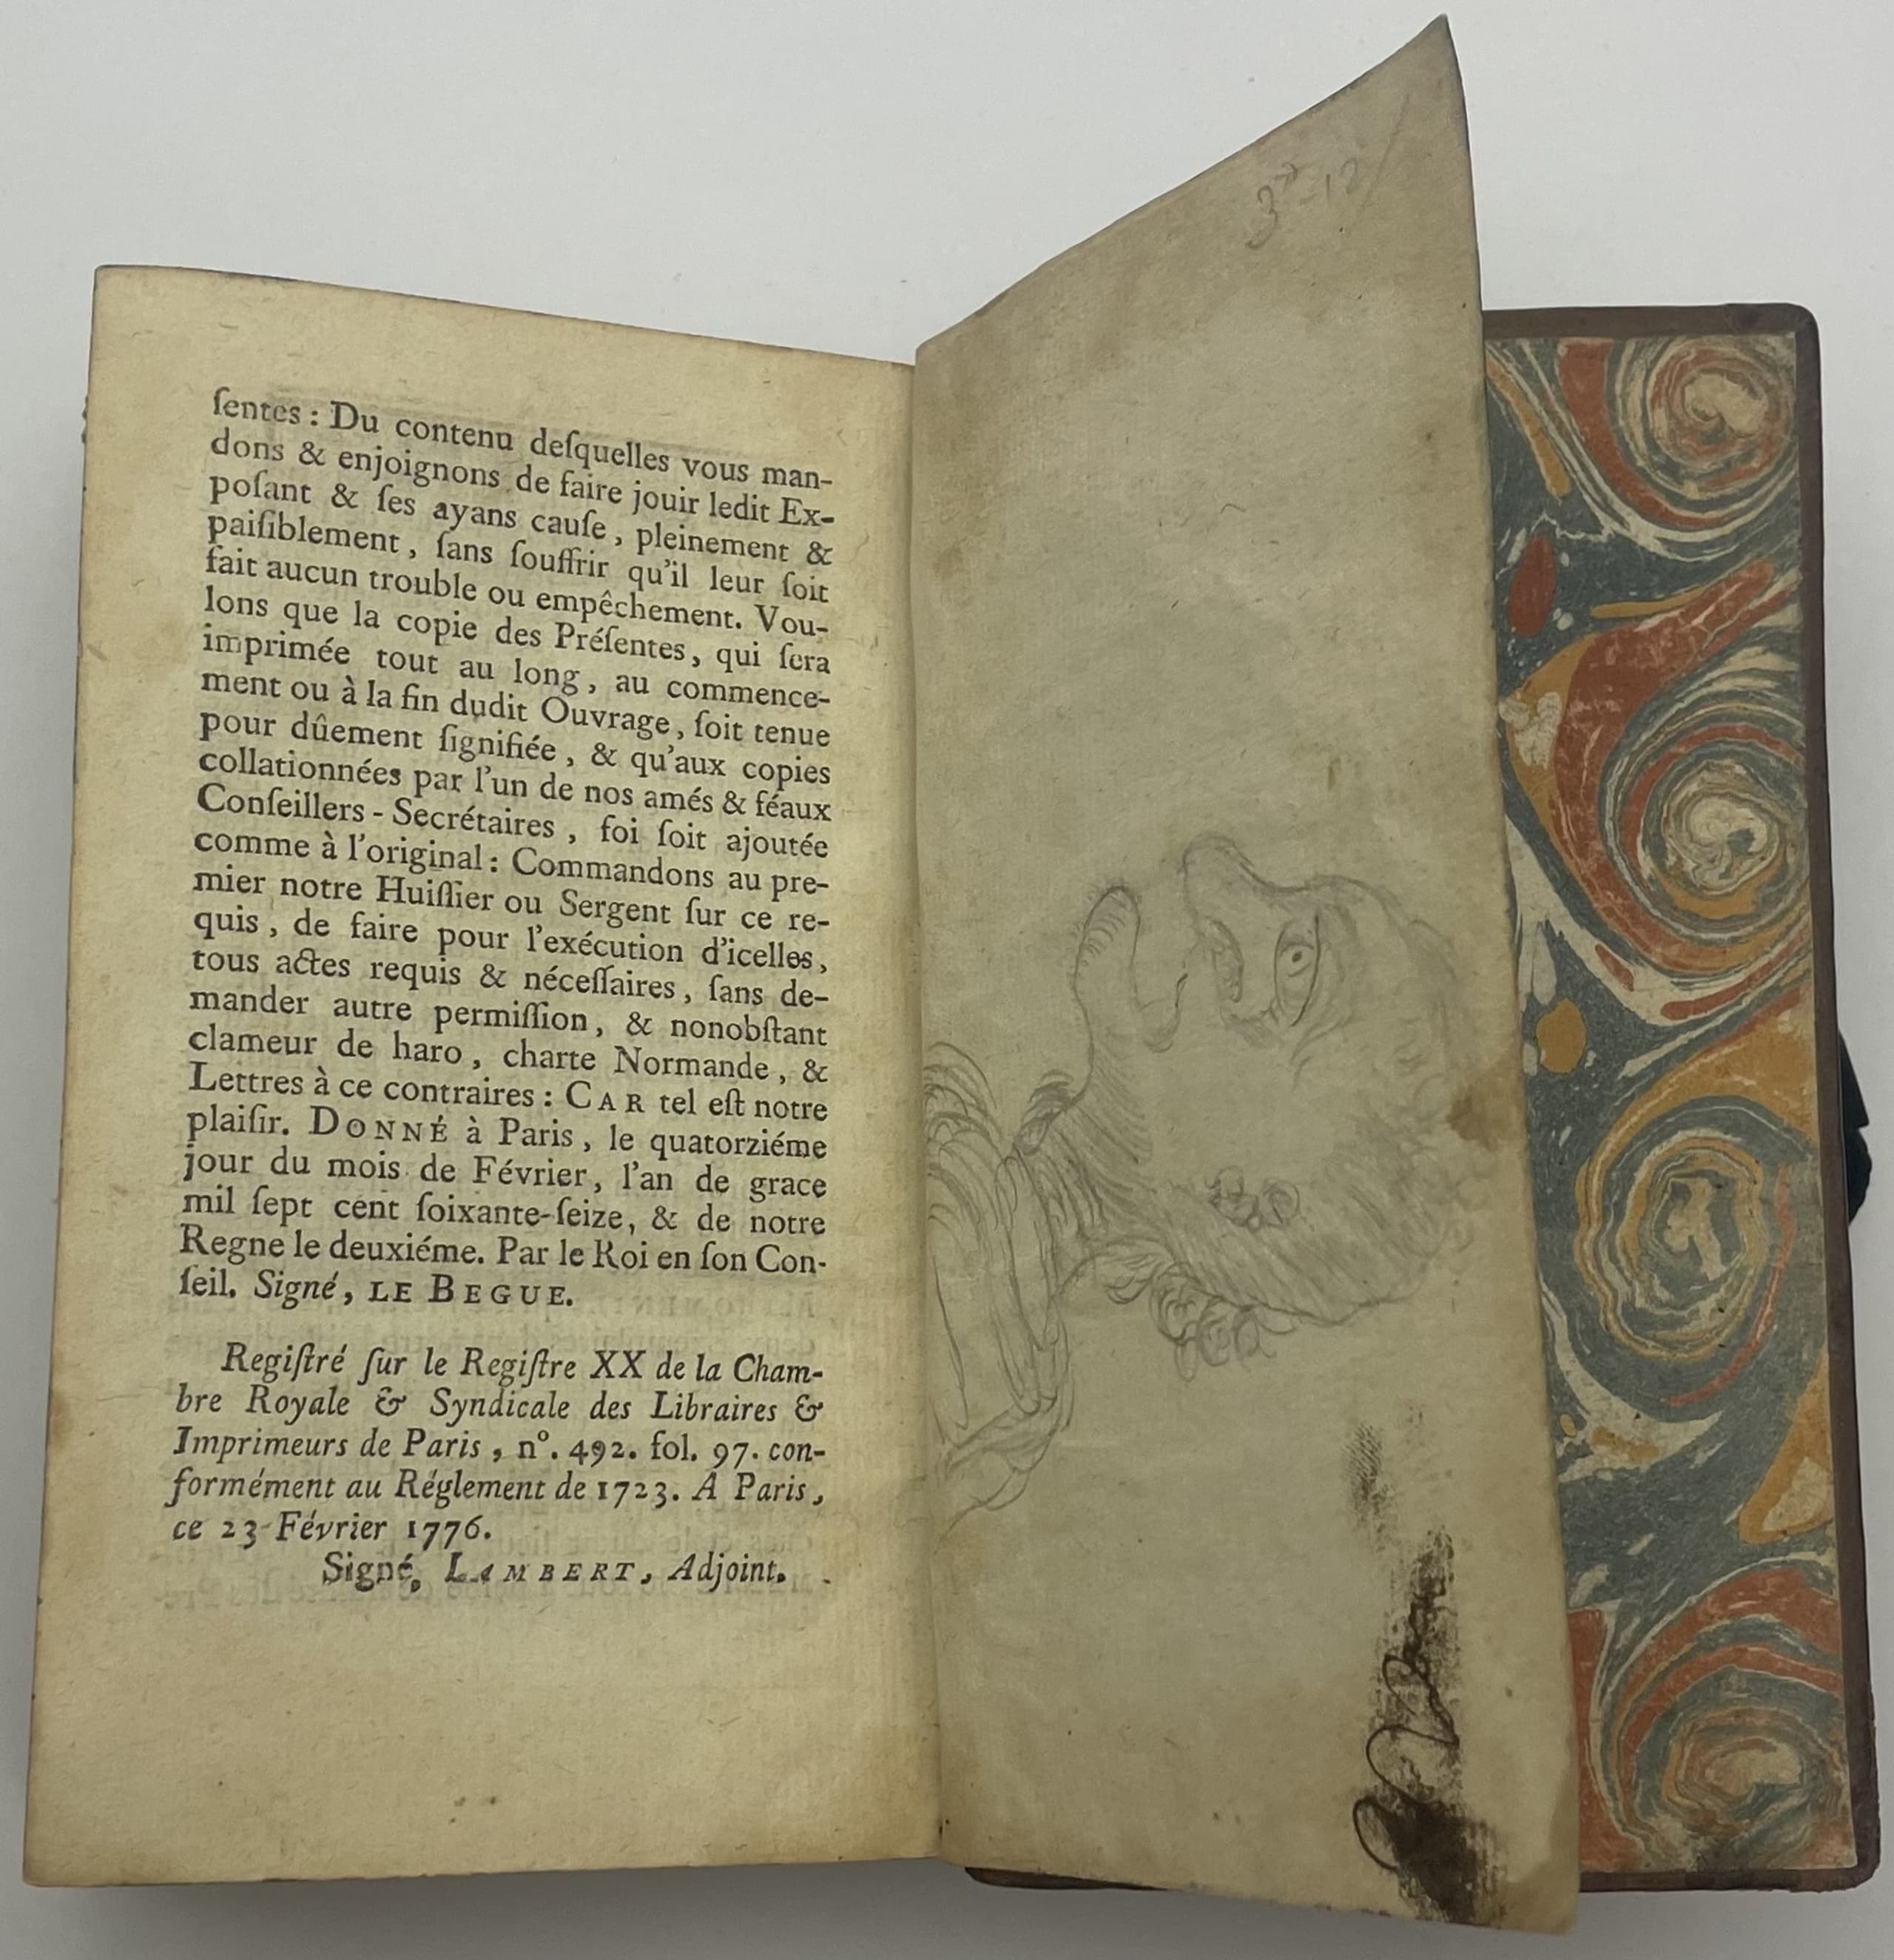 ſentes : Du contenu deſquelles vous man-
dons & enjoignons de faire jouir ledit Ex-
poſant & ſes ayans cauſe, pleinement &
paiſiblement, ſans ſouffrir qu'il leur ſoit
fait aucun trouble ou empêchement. Vou-
lons que la copie des Préſentes, qui ſera
imprimée tout au long, au commence-
ment ou à la fin dudit Ouvrage, ſoit tenue
pour dûement ſignifiée, & qu'aux copies
collationnées par l'un de nos amés & féaux
Conſeillers-Secrétaires, foi ſoit ajoutée
comme à l'original : Commandons au pre-
mier notre Huiſſier ou Sergent ſur ce re-
quis, de faire pour l'exécution d'icelles,
tous actes requis & néceſſaires, ſans de-
mander autre permiſſion, & nonobſtant
clameur de haro, charte Normande, &
Lettres à ce contraires : CAR tel eſt notre
plaiſir. DONNÉ à Paris, le quatorziéme
jour du mois de Février, l'an de grace
mil ſept cent ſoixante-ſeize, & de notre
Regne le deuxiéme. Par le Roi en ſon Con-
ſeil. Signé, LE BEGUE.
Regiſtré ſur le Regiſtre XX de la Cham-
bre Royale & Syndicale des Libraires &
Imprimeurs de Paris, n°. 492. fol. 97. con-
formément au Réglement de 1723. A Paris,
ce 23 Février 1776.
Signé, LAMBERT, Adjoint.